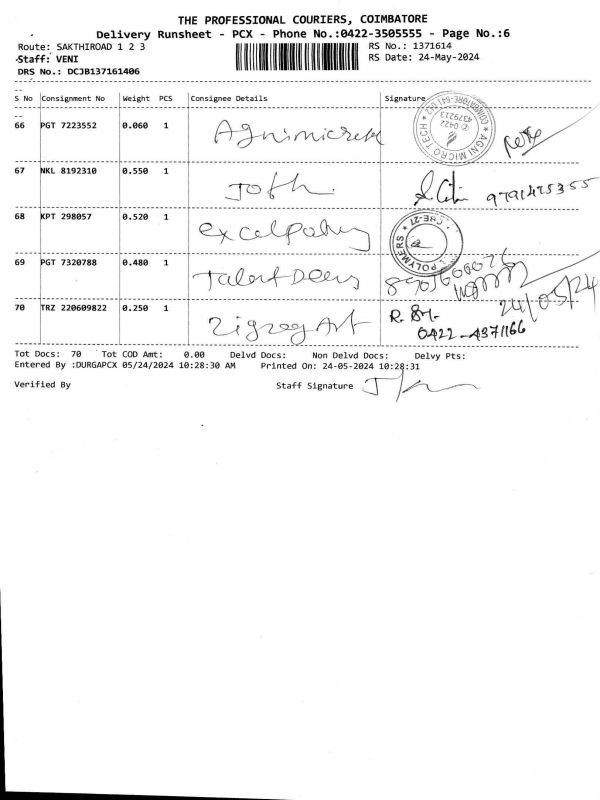 THE PROFESSIONAL COURIERS, COIMBATORE
Delivery Runsheet - PCX - Phone No.:0422-3505555 - Page No.:6
Route: SAKTHIROAD 1 2 3 RS No.: 1371614
Staff: VENI RS Date: 24-May-2024
DRS No.: DCJB137161406
S No Consignment No Weight PCS Consignee Details Signature
66 PGT 7223552 0.060 1 Agnimicrotek
AGNI MICRO TECH
COIMBATORE-641
0422
4379213
67 NKL 8192310 0.550 1 9791475355
68 KPT 298057 0.520 1 excelpolymy
POLYMERS CBE-27
69 PGT 7320788 0.480 1 Talent Deers
24/05/24
70 TRZ 220609822 0.250 1 zigzag Art
0422-4371166
Tot Docs: 70 Tot COD Amt: 0.00 Delvd Docs: Non Delvd Docs: Delvy Pts:
Entered By :DURGAPCX 05/24/2024 10:28:30 AM Printed On: 24-05-2024 10:28:31
Verified By Staff Signature